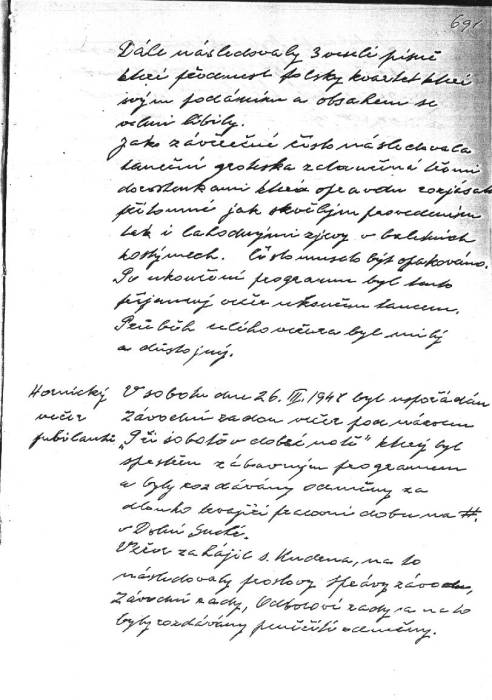 691
Dále následovaly 3 veselé písně
které přednesl polský kvartet které
svým podáním a obsahem se
velmi líbily.
Jako závěrečné číslo následovala
taneční groteska zatančená třemi
dorostenkami která opravdu rozjasala
přítomné jak skvělým provedením
tak i lahodnými zjevy v baletních
kostymech. Číslo muselo být opakováno.
Po ukončení programu byl tento
příjemný večer ukončen tancem.
Průběh celého večera byl milý
a důstojný.
Hornický
večer
jubilantů
V sobotu dne 26. III. 1948 byl uspořádán
Závodní radou večer pod názvem
„Při sobotě v dobré notě" který byl
spestřen zábavným programem
a byly rozdávány odměny za
dlouho trvající pracovní dobu na
v Dolní Suché.
Večer zahájil s. Kudena, na to
následovaly proslovy správy závodu,
Závodní rady, Odborové rady a na to
byly rozdávány peněžité odměny.